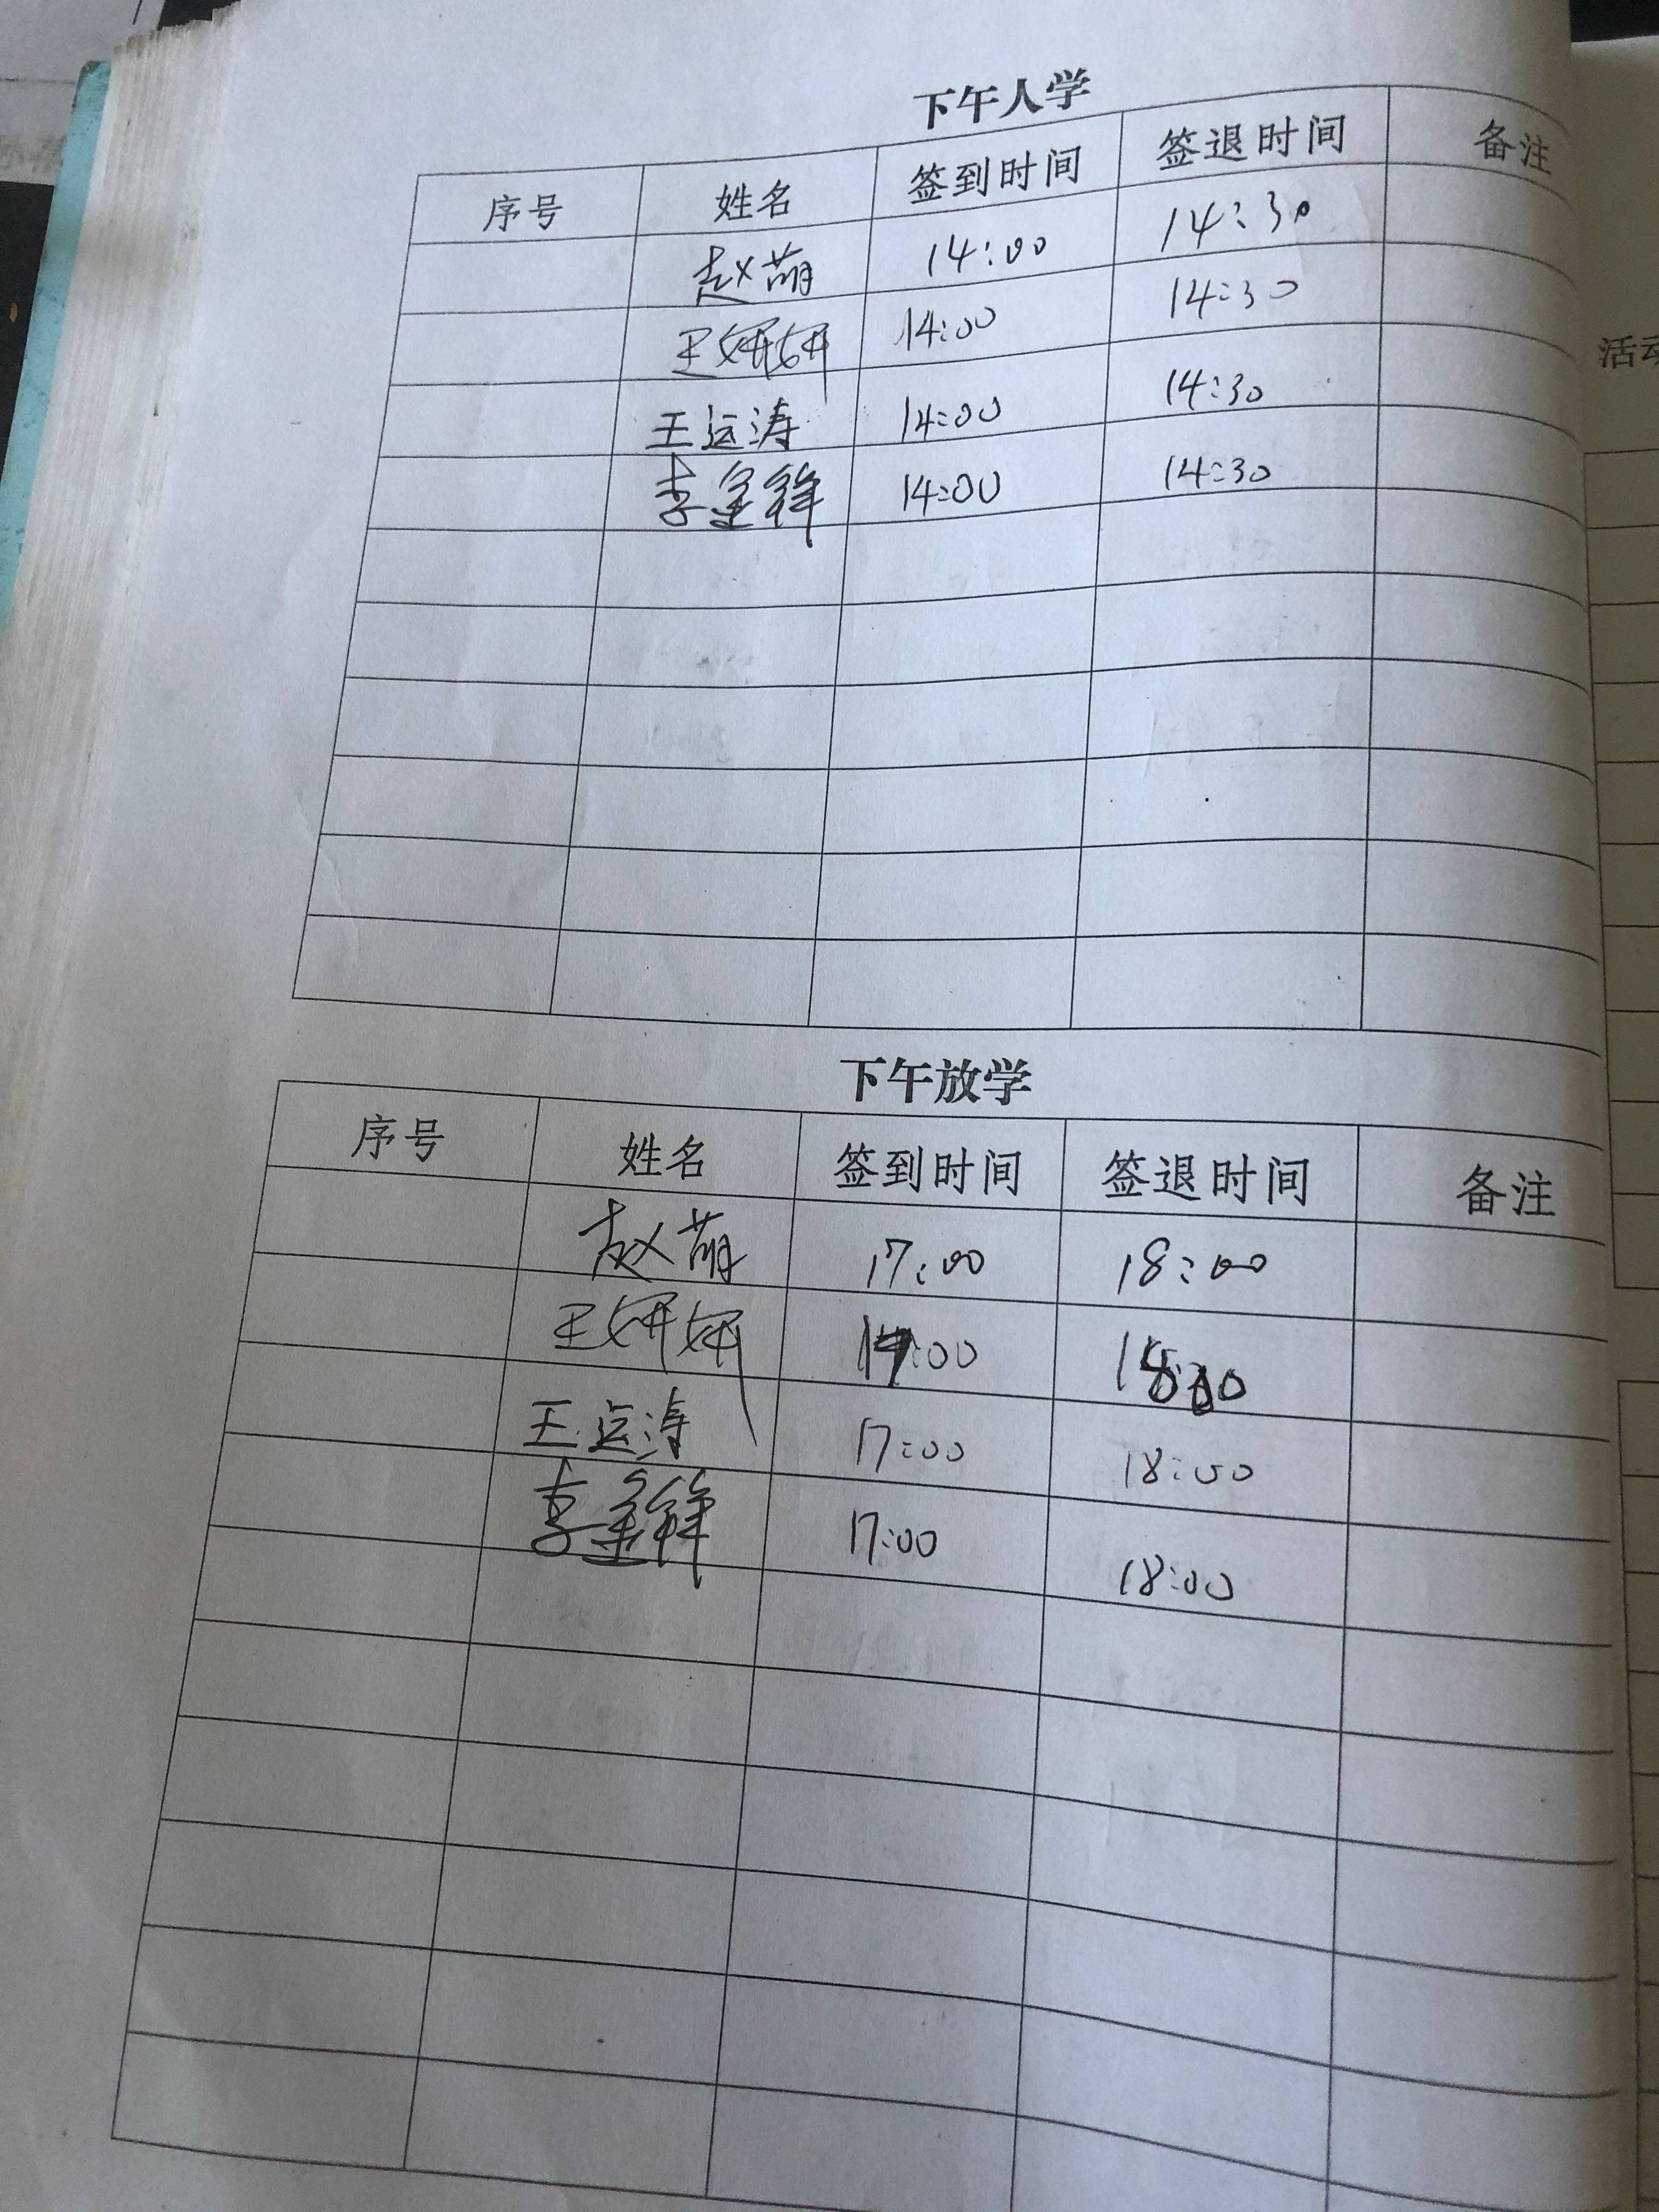 下午人学
序号 姓名 签到时间 签退时间 备注
赵萌 14:00 14:30
王妍妍 14:00 14:30
王运涛 14:00 14:30
李金锋 14:00 14:30
下午放学
序号 姓名 签到时间 签退时间 备注
赵萌 17:00 18:00
王妍妍 17:00 18:00
王运涛 17:00 18:00
李金锋 17:00 18:00
活动